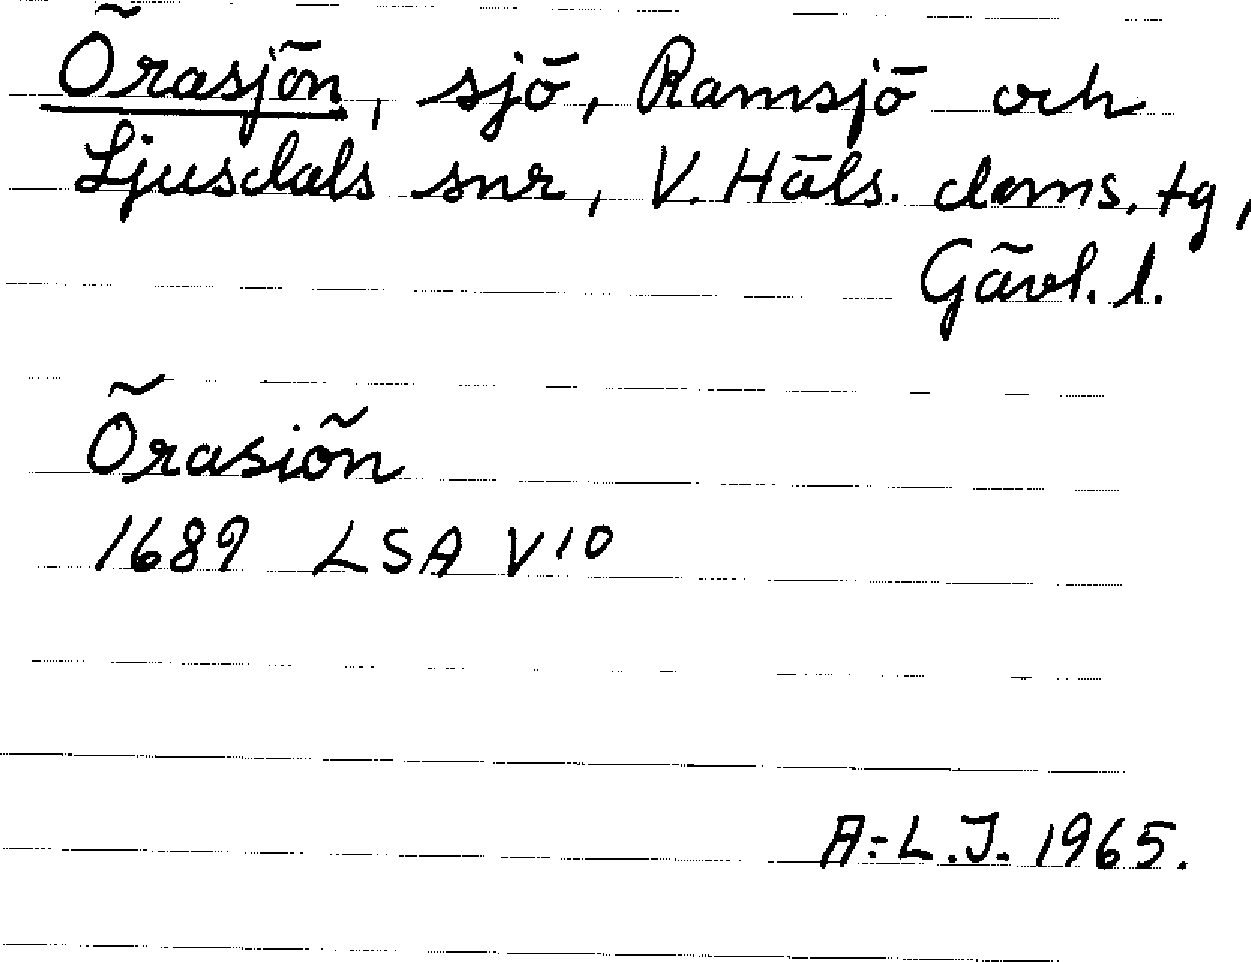 Örasjön, sjö, Ramsjö och
Ljusdals snr, V. Häls. doms. tg,
Gävl. l.
Örasiön
1689 LSA V10
A-L.J. 1965.